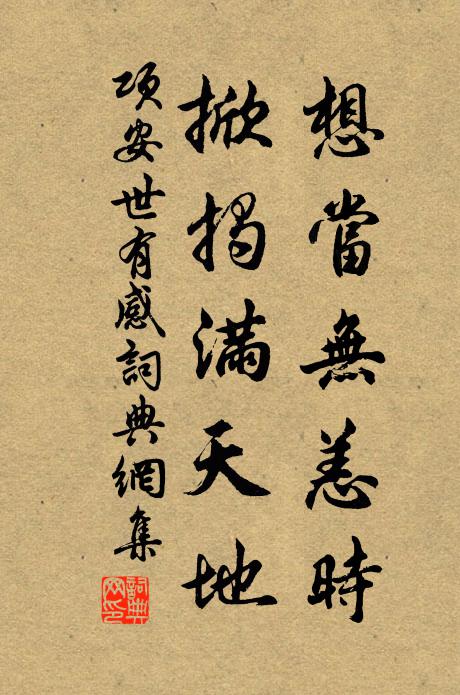 想當無恙時
掀揭滿天地
項安世有感詞典網集
詞典網印